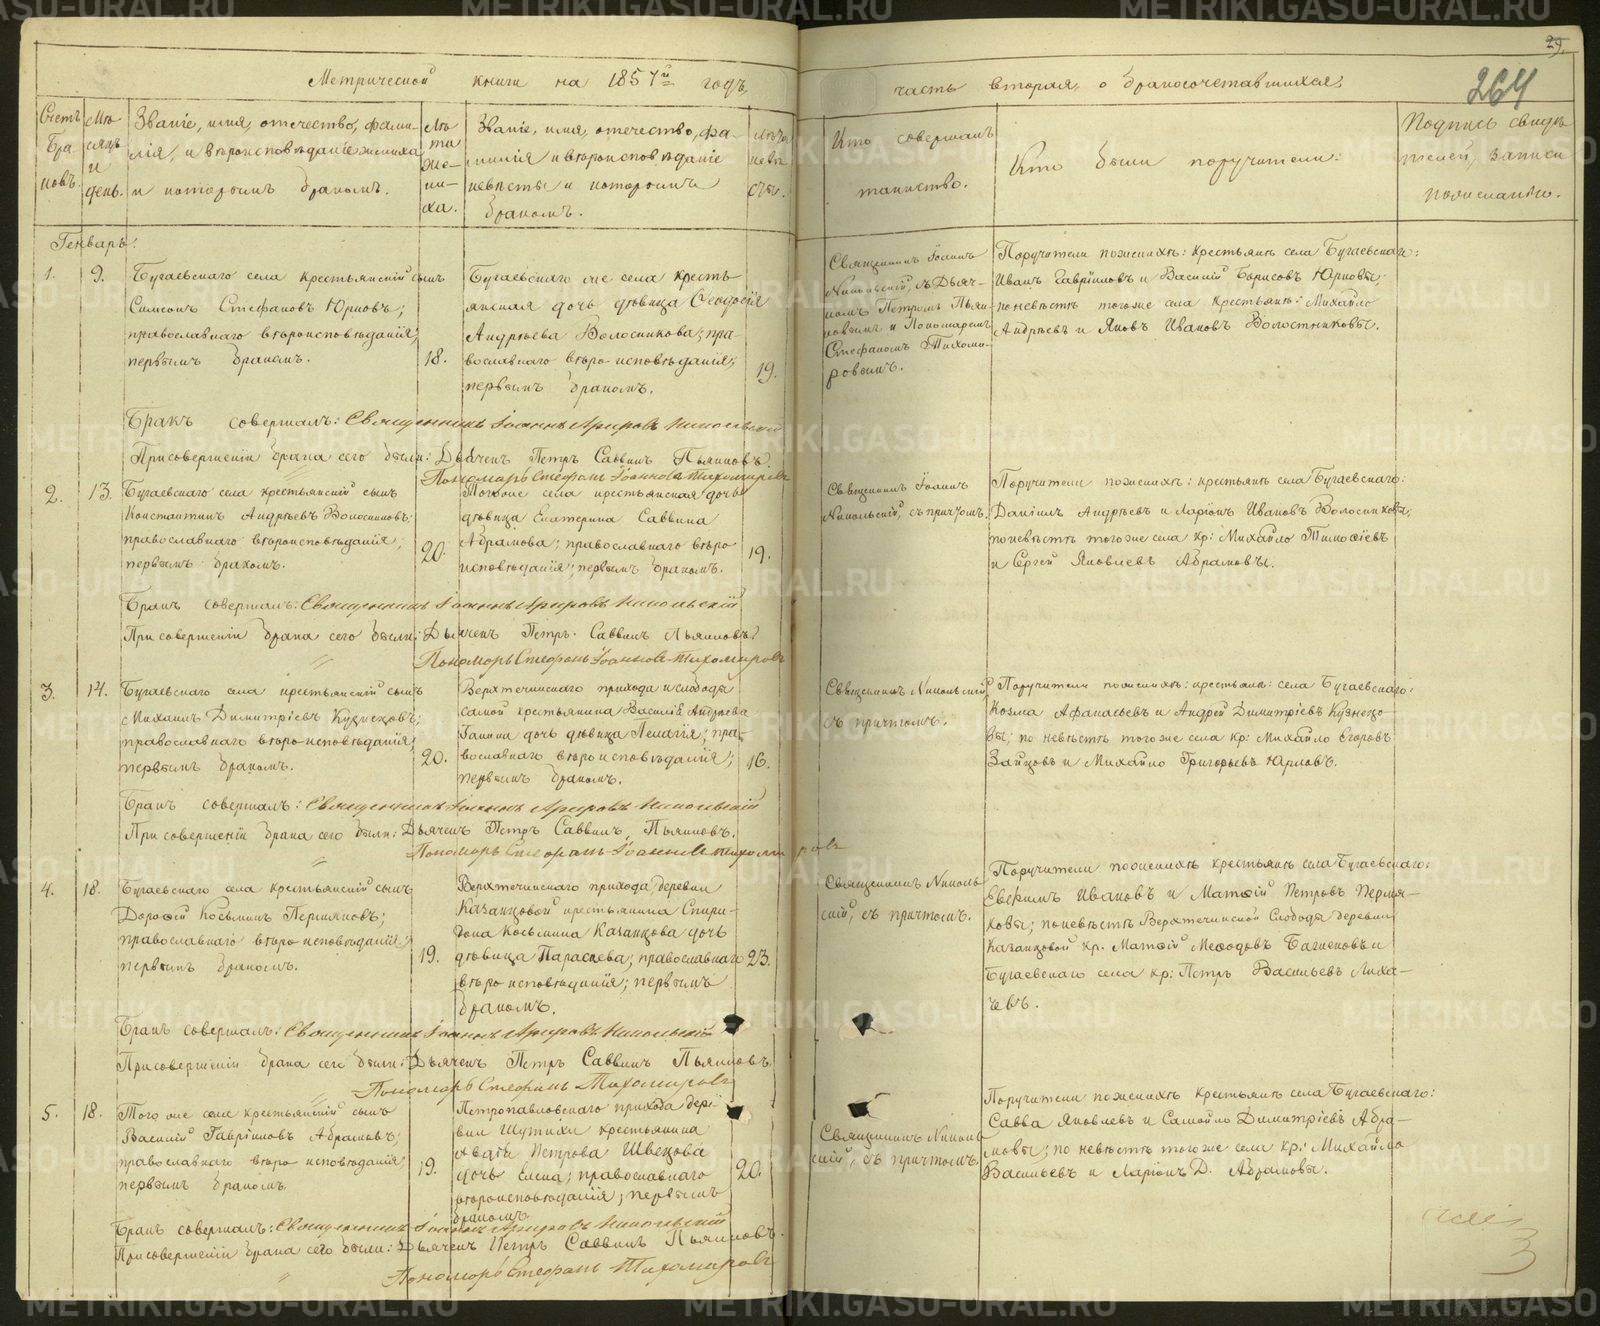 29.
264
Метрической книги на 1857й годъ,
часть вторая, о бракосочетавшихся,
Счетъ браковъ.
Мѣсяцъ и день.
Званіе, имя, отечество, фамилія, и вѣроисповѣданіе жениха и которымъ бракомъ.
Лѣта жениха.
Званіе, имя, отечество, фамилія и вѣроисповѣданіе невѣсты и которымъ бракомъ.
Лѣта невѣсты.
Кто совершалъ таинство.
Кто были поручители:
Подпись свидѣтелей, записи по желанію.
Генварь.
1.
9.
Бугаевскаго села крестьянскій сынъ
Симеонъ Стефановъ Юрловъ;
православнаго вѣроисповѣданія;
первымъ бракомъ.
18.
Бугаевскаго же села кресть-
янская дочь дѣвица Ѳеодосія
Андрѣева Волосникова; пра-
вославнаго вѣроисповѣданія;
первымъ бракомъ.
19.
Священникъ Іоаннъ
Никольскій, съ Дьяч-
комъ Петромъ Пьян-
ковымъ и Пономаремъ
Стефаномъ Тихоми-
ровымъ.
Поручители по женихѣ: крестьянѣ села Бугаевскаго:
Иванъ Гавріиловъ и Василій Борисовъ Юрловы;
по невѣстѣ того же села крестьянѣ: Михайло
Андрѣевъ и Яковъ Ивановъ Волостниковы.
Бракъ совершалъ: Священникъ Іоаннъ Никольскій
При совершеніи брака сего были: Дьячекъ Петръ Саввинъ Пьянковъ.
Пономарь Стефанъ Іоанновъ Тихомировъ
2.
13.
Бугаевскаго села крестьянскій сынъ
Константинъ Андрѣевъ Волосниковъ
православнаго вѣроисповѣданія;
первымъ бракомъ.
20.
Того же села крестьянская дочь
дѣвица Екатерина Саввина
Абрамова; православнаго вѣро
исповѣданія; первымъ бракомъ.
19.
Священникъ Іоаннъ
Никольскій, съ причтомъ.
Поручители по женихѣ: крестьянѣ села Бугаевскаго:
Даніилъ Андрѣевъ и Ларіонъ Ивановъ Волосниковы;
по невѣстѣ того же села кр: Михайло Тимофіевъ
и Сергѣй Яковлевъ Абрамовы.
Бракъ совершалъ: Священникъ Іоаннъ Никольскій
При совершеніи брака сего были: Дьячекъ Петръ Саввинъ Пьянковъ
Пономарь Стефанъ Іоанновъ Тихомировъ
3.
14.
Бугаевскаго села крестьянскій сынъ
Михаилъ Димитріевъ Кузнецовъ;
православнаго вѣроисповѣданія;
первымъ бракомъ.
20.
Верхтечинскаго прихода и слободы
самой крестьянина Василія Андреева
дочь дѣвица Пелагія; пра-
вославнаго вѣроисповѣданія;
первымъ бракомъ.
16.
Священникъ Никольскій
съ причтомъ.
Поручители по женихѣ: крестьянѣ: села Бугаевскаго:
Козма Афанасьевъ и Андрей Димитріевъ Кузнецо-
вы; по невѣстѣ того же села кр: Михайло Егоровъ
Зайцовъ и Михайло Григорьевъ Юрловъ.
Бракъ совершалъ: Священникъ Іоаннъ Никольскій
При совершеніи брака сего были: Дьячекъ Петръ Саввинъ Пьянковъ.
Пономарь Стефанъ Іоанновъ Тихомировъ
4.
18.
Бугаевскаго села крестьянскій сынъ
Дорофей Косьминъ Пермяковъ;
православнаго вѣроисповѣданія;
первымъ бракомъ.
19.
Верхтечинскаго прихода деревни
Казанцовой крестьянина Спири-
дона Косьмина Казанцова дочь
дѣвица Параскева; православнаго
вѣроисповѣданія; первымъ
бракомъ.
23.
Священникъ Николь-
скій, съ причтомъ.
Поручители по женихѣ крестьянѣ села Бугаевскаго:
Евфимъ Ивановъ и Матѳій Петровъ Пермя-
ковы; по невѣстѣ Верхтечинской Слободы деревни
Казанцовой кр. Матѳій Меѳодовъ и
Бугаевскаго села кр: Петръ Васильевъ Лиха-
чевъ.
Бракъ совершалъ: Священникъ Іоаннъ Никольскій
При совершеніи брака сего были: Дьячекъ Петръ Саввинъ Пьянковъ
Пономарь Стефанъ Тихомировъ
5.
18.
Того же села крестьянскій сынъ
Василій Гавріиловъ Абрамовъ;
православнаго вѣроисповѣданія;
первымъ бракомъ.
19.
Петропавловскаго прихода дере
вни Шутихи крестьянина
Петрова Швецова
дочь Елена; православнаго
вѣроисповѣданія; первымъ
бракомъ
20.
Священникъ Николь
скій, съ причтомъ.
Поручители по женихѣ крестьянѣ села Бугаевскаго:
Савва Яковлевъ и Самойло Димитріевъ Абра-
мовы; по невѣстѣ того же села кр: Михайло
Васильевъ и Ларіонъ Д. Абрамовы.
Бракъ совершалъ: Священникъ Іоаннъ Никольскій
При совершеніи брака сего были: Дьячекъ Петръ Саввинъ Пьянковъ.
Пономарь Стефанъ Тихомировъ
METRIKI.GASO-URAL.RU